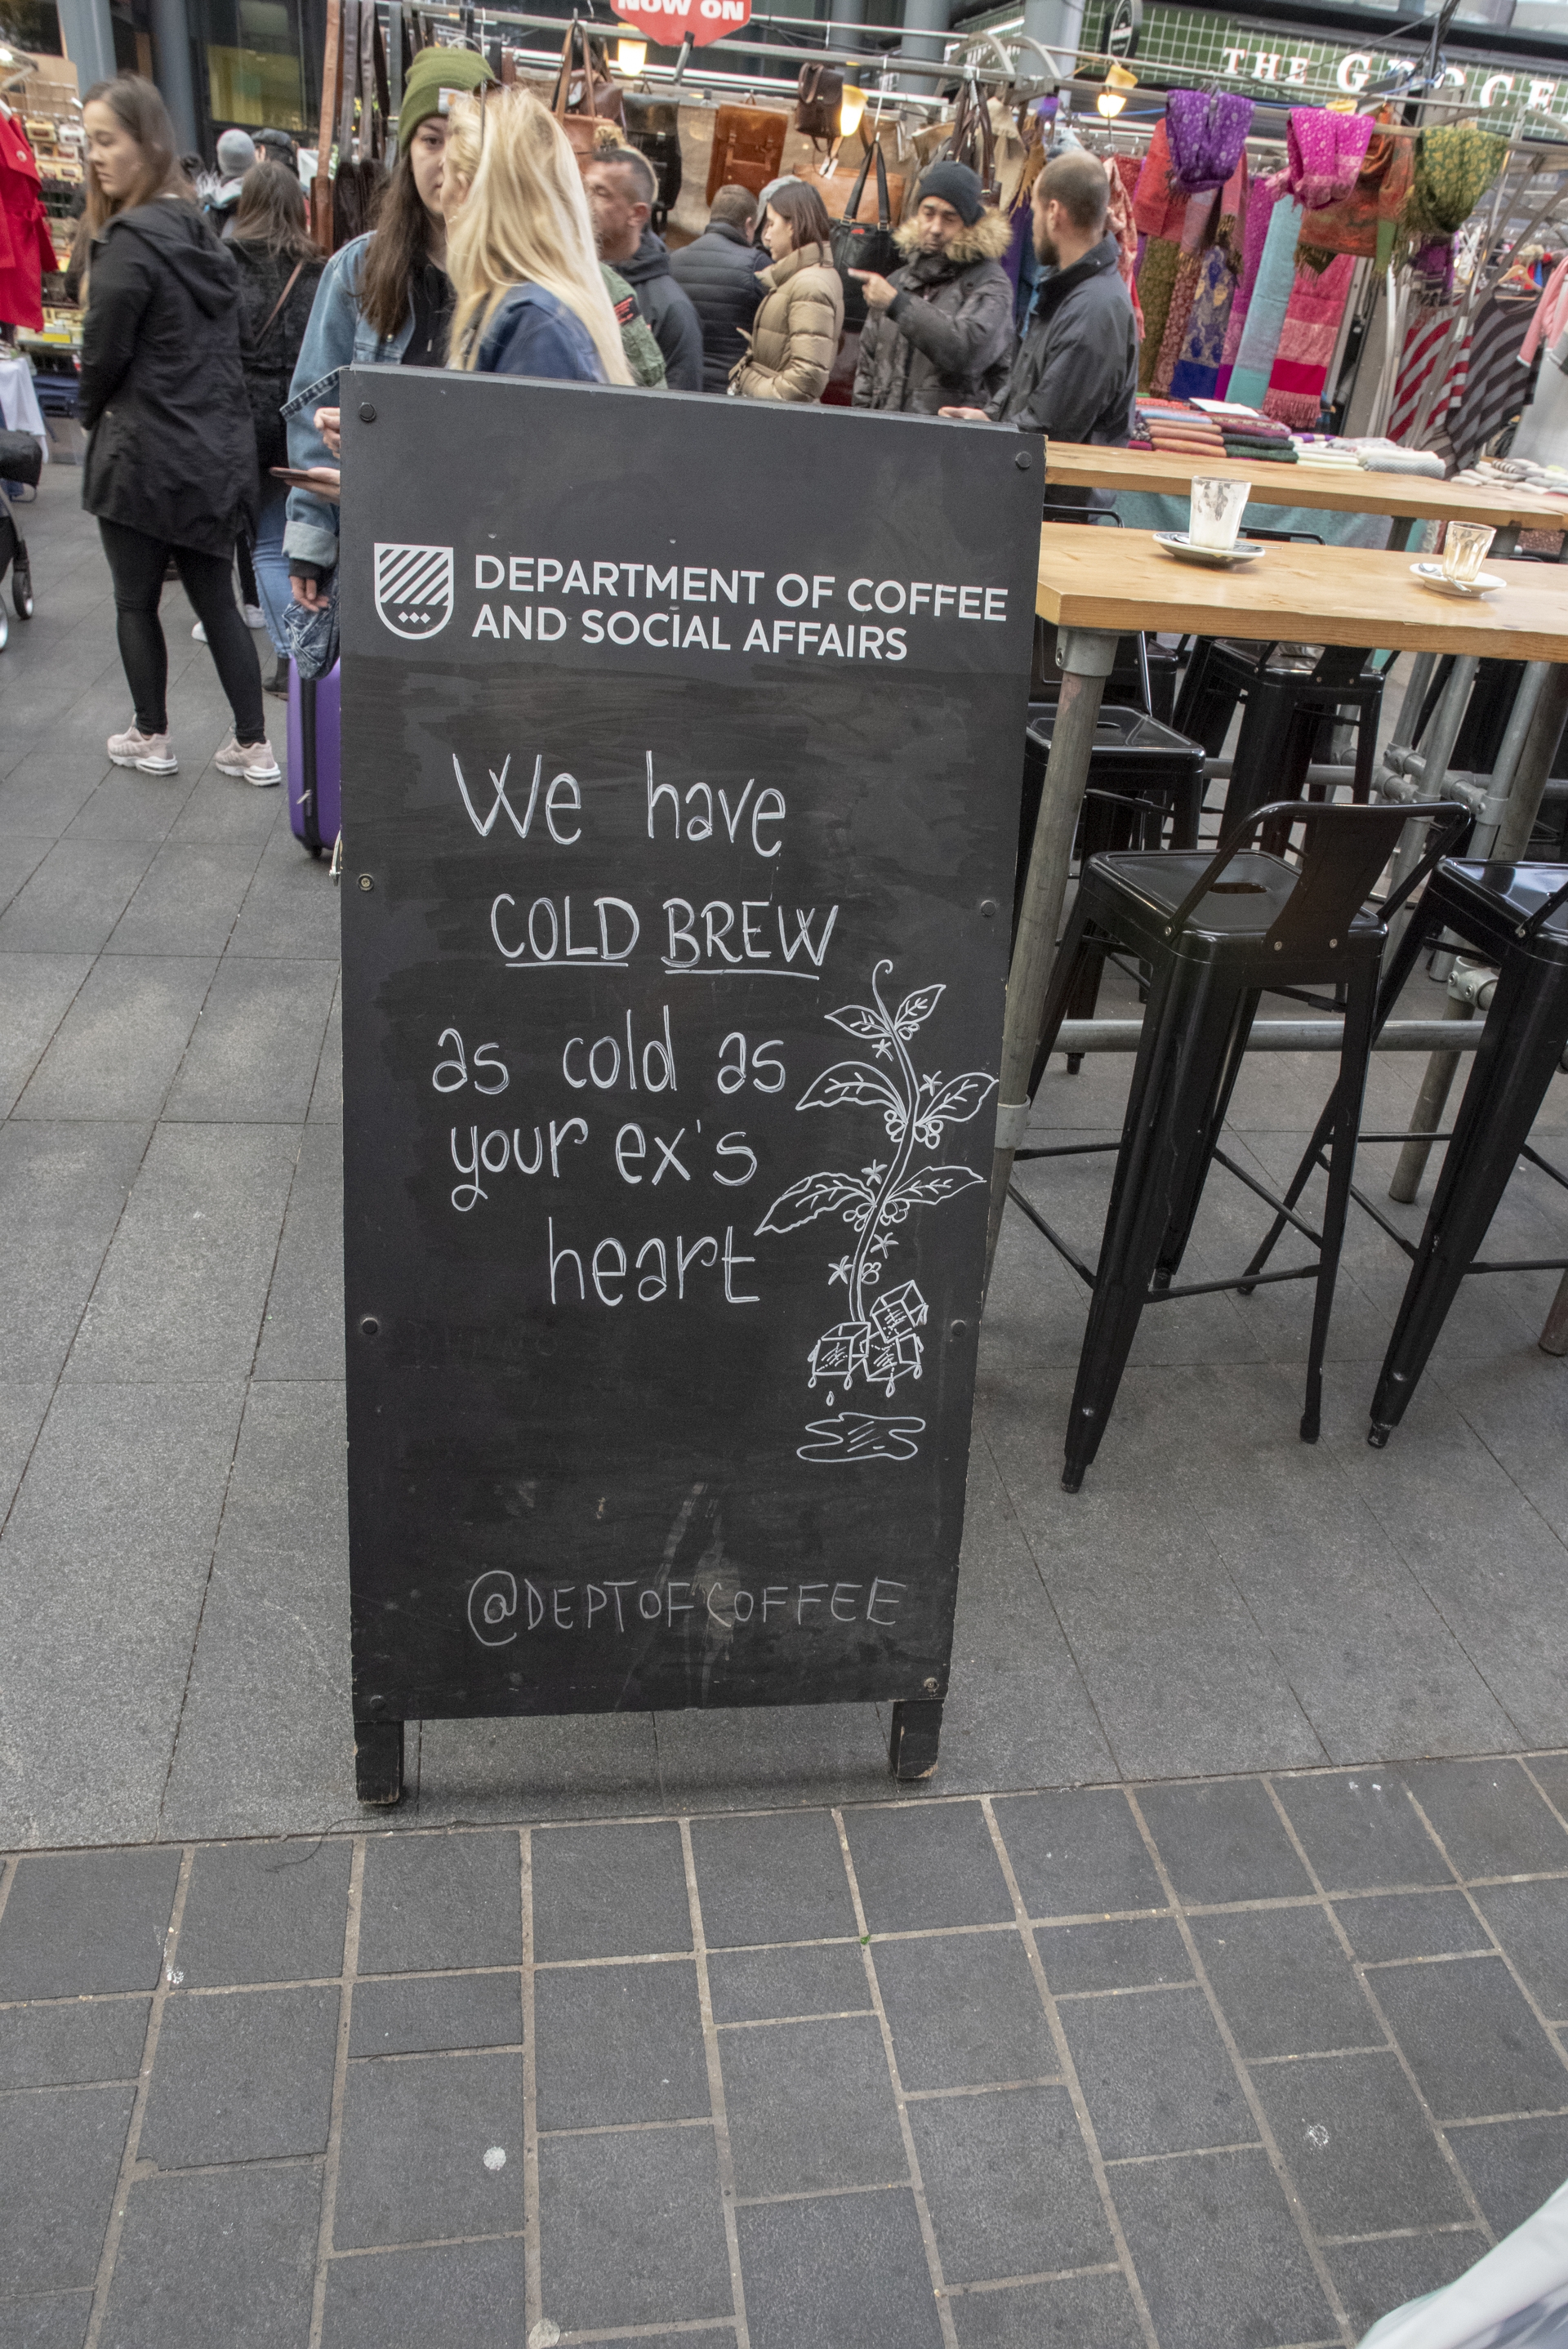 NOW ON
THE GROCE
DEPARTMENT OF COFFEE
AND SOCIAL AFFAIRS
We have
COLD BREW
as cold as
your ex's
heart
@DEPTOFCOFFEE